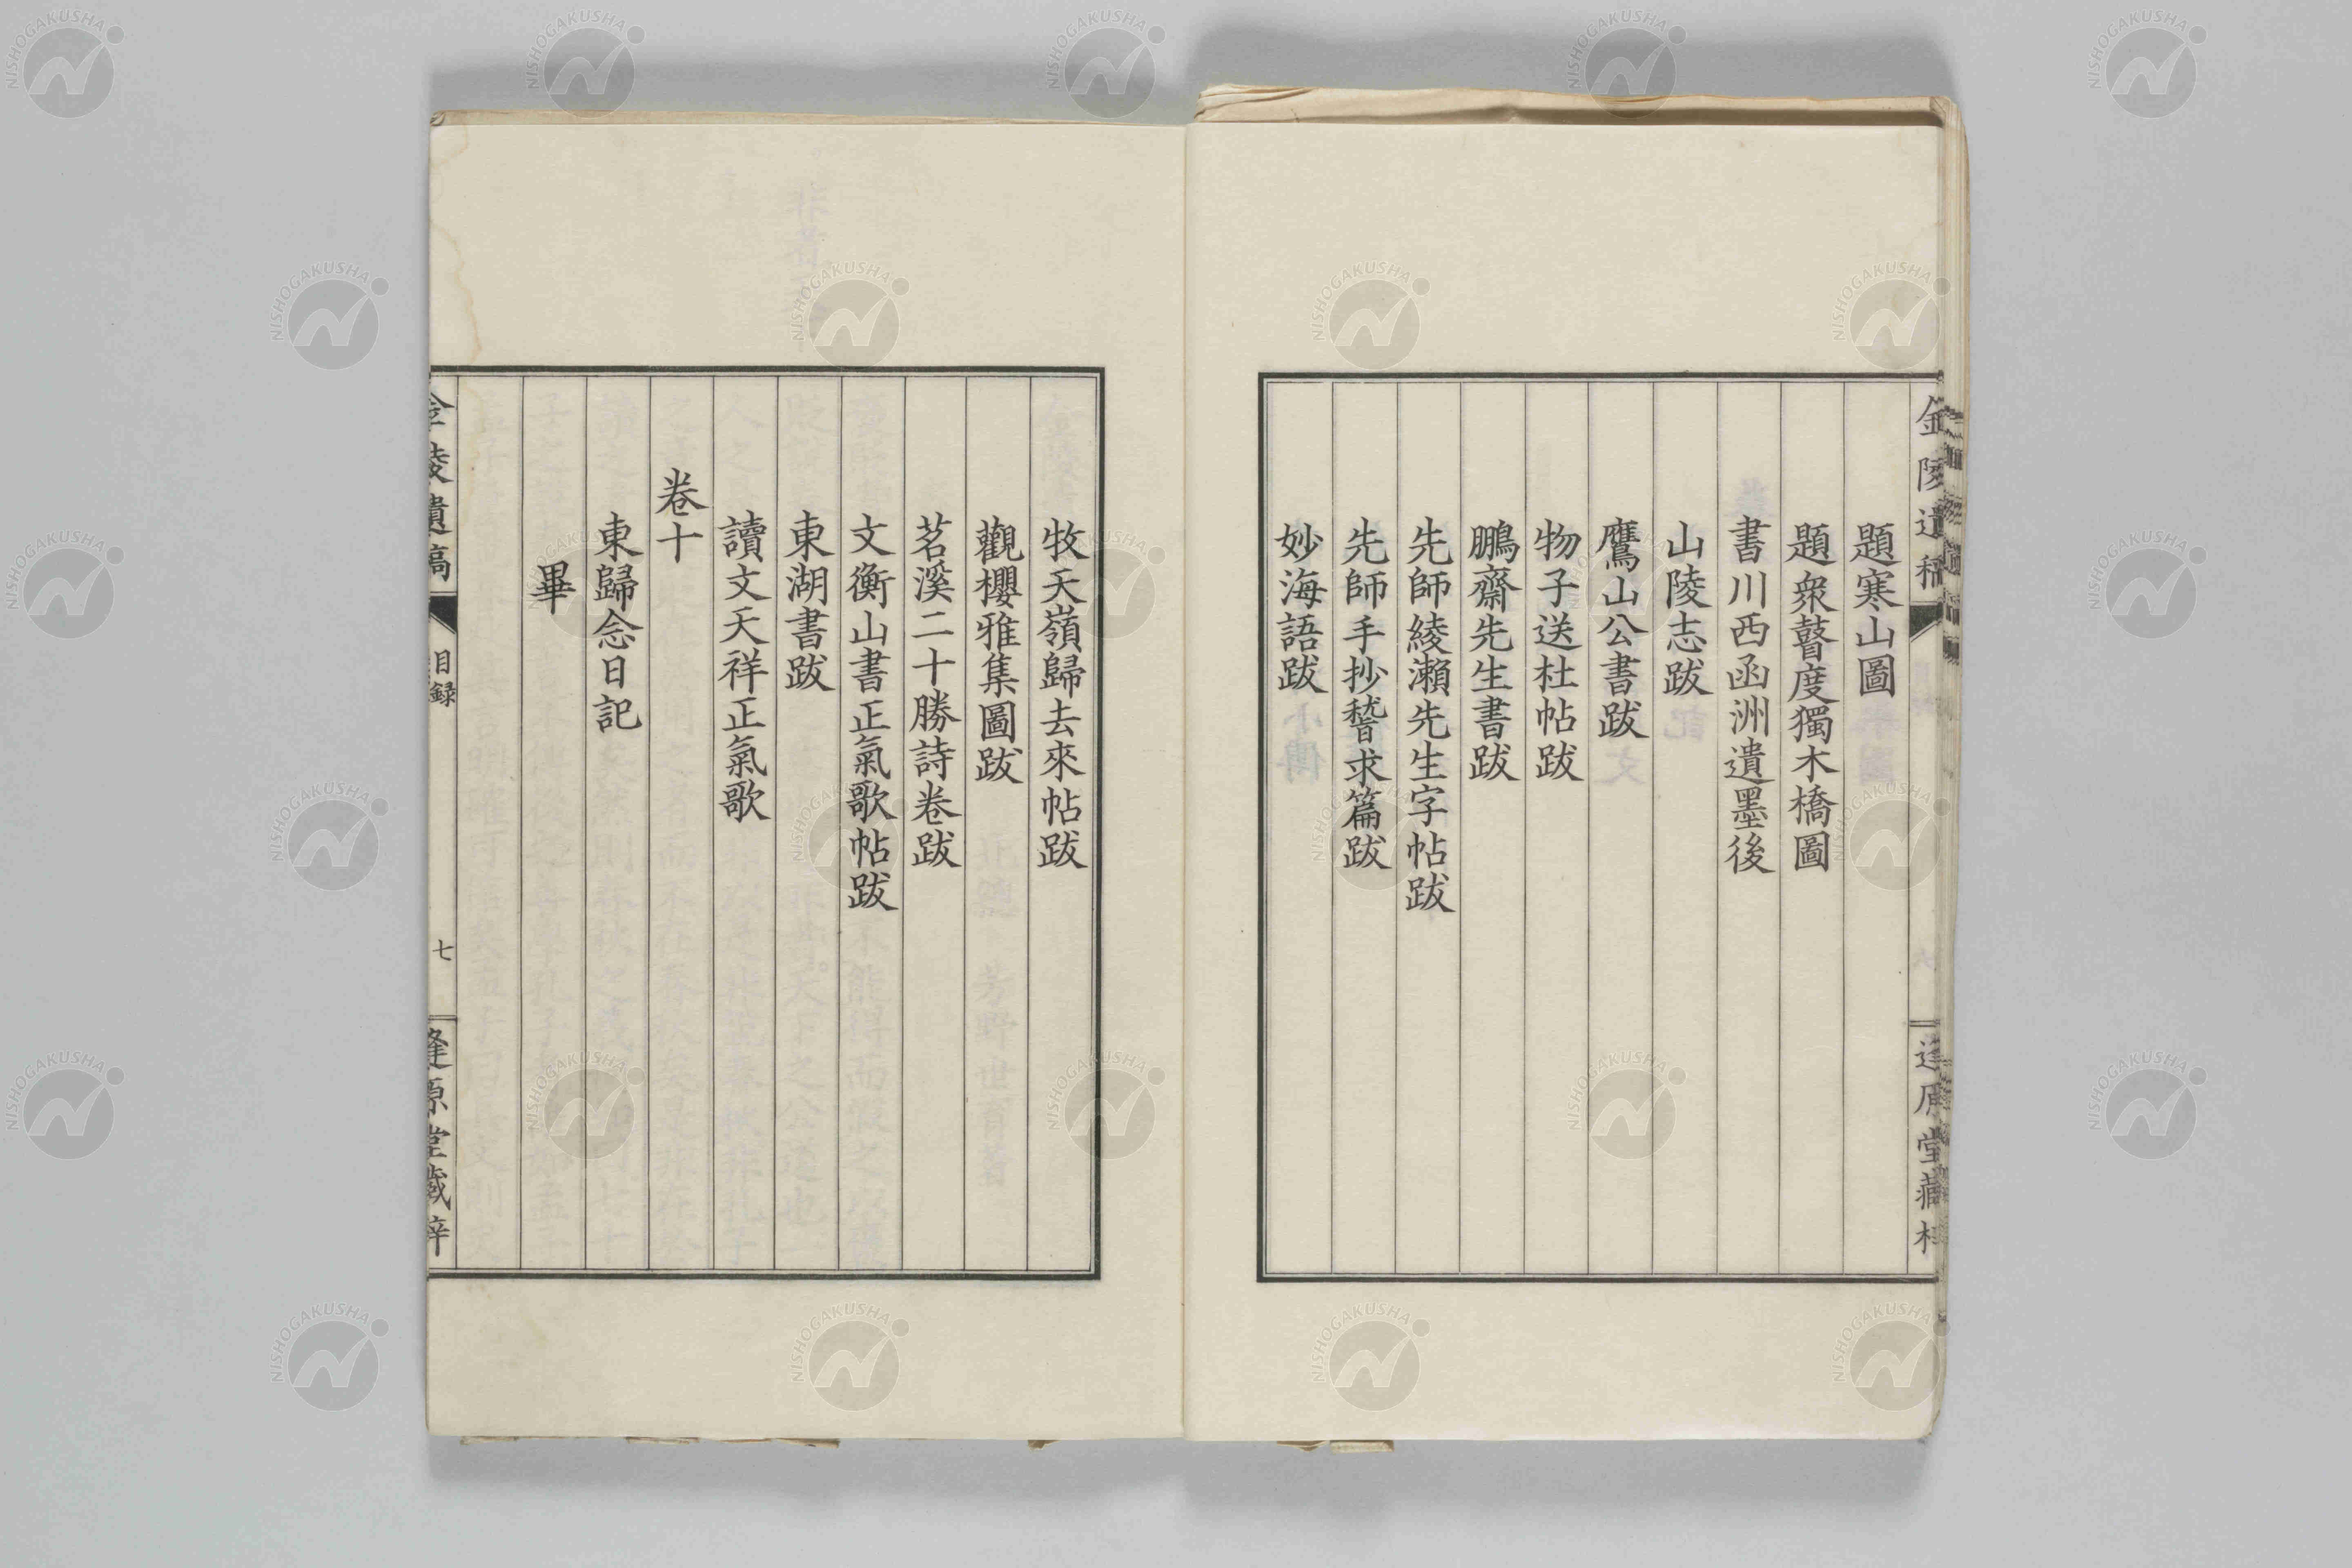 金陵遺稿
逢原堂藏梓
題寒山圖
題衆瞽度獨木橋圖
書川西函洲遺墨後
山陵志跋
鷹山公書跋
物子送杜帖跋
鵬齋先生書跋
先師綾瀬先生字帖跋
先師手抄督求篇跋
妙海語跋
牧天嶺歸去來帖跋
觀櫻雅集圖跋
茗溪二十勝詩卷跋
文衡山書正氣歌帖跋
東湖書跋
讀文天祥正氣歌
卷十
東歸念日記
畢
金陵遺稿
目録
七
逢原堂藏梓
NISHOGAKUSHA